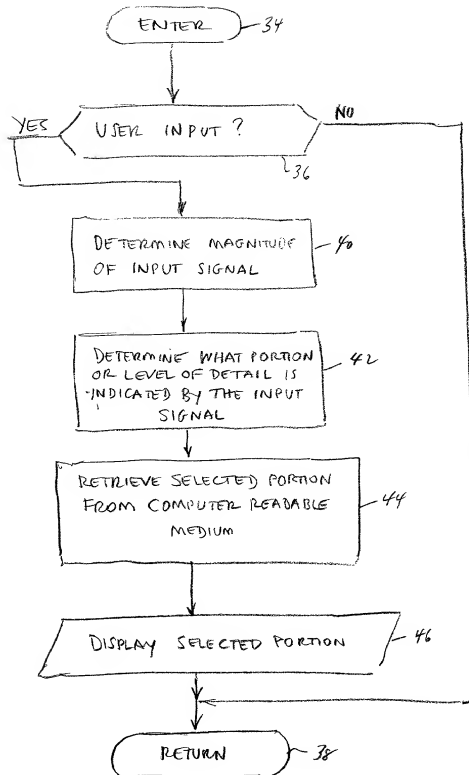 ENTER
34
YES
USER INPUT?
NO
36
DETERMINE MAGNITUDE
OF INPUT SIGNAL
40
DETERMINE WHAT PORTION
OR LEVEL OF DETAIL IS
INDICATED BY THE INPUT
SIGNAL
42
RETRIEVE SELECTED PORTION
FROM COMPUTER READABLE
MEDIUM
44
DISPLAY SELECTED PORTION
46
RETURN
38